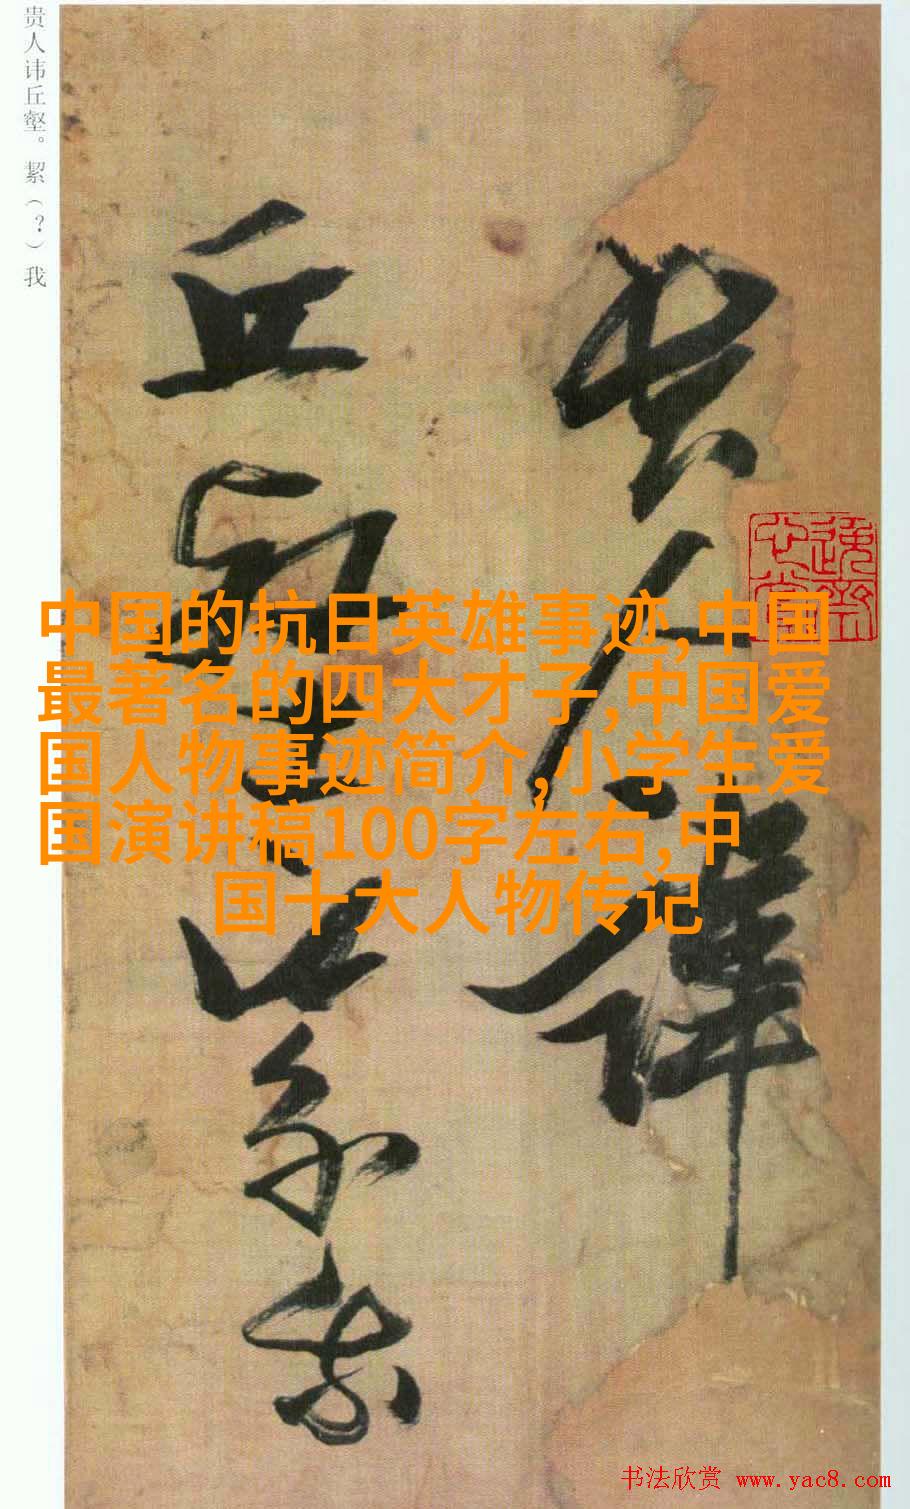 贵人讳丘壑。絜（？）我
贵人讳
丘壑絜我
中国的抗日英雄事迹,中国
最著名的四大才子,中国爱
国人物事迹简介,小学生爱
国演讲稿100字左右,中
国十大人物传记
书法欣赏 www.yac8.com